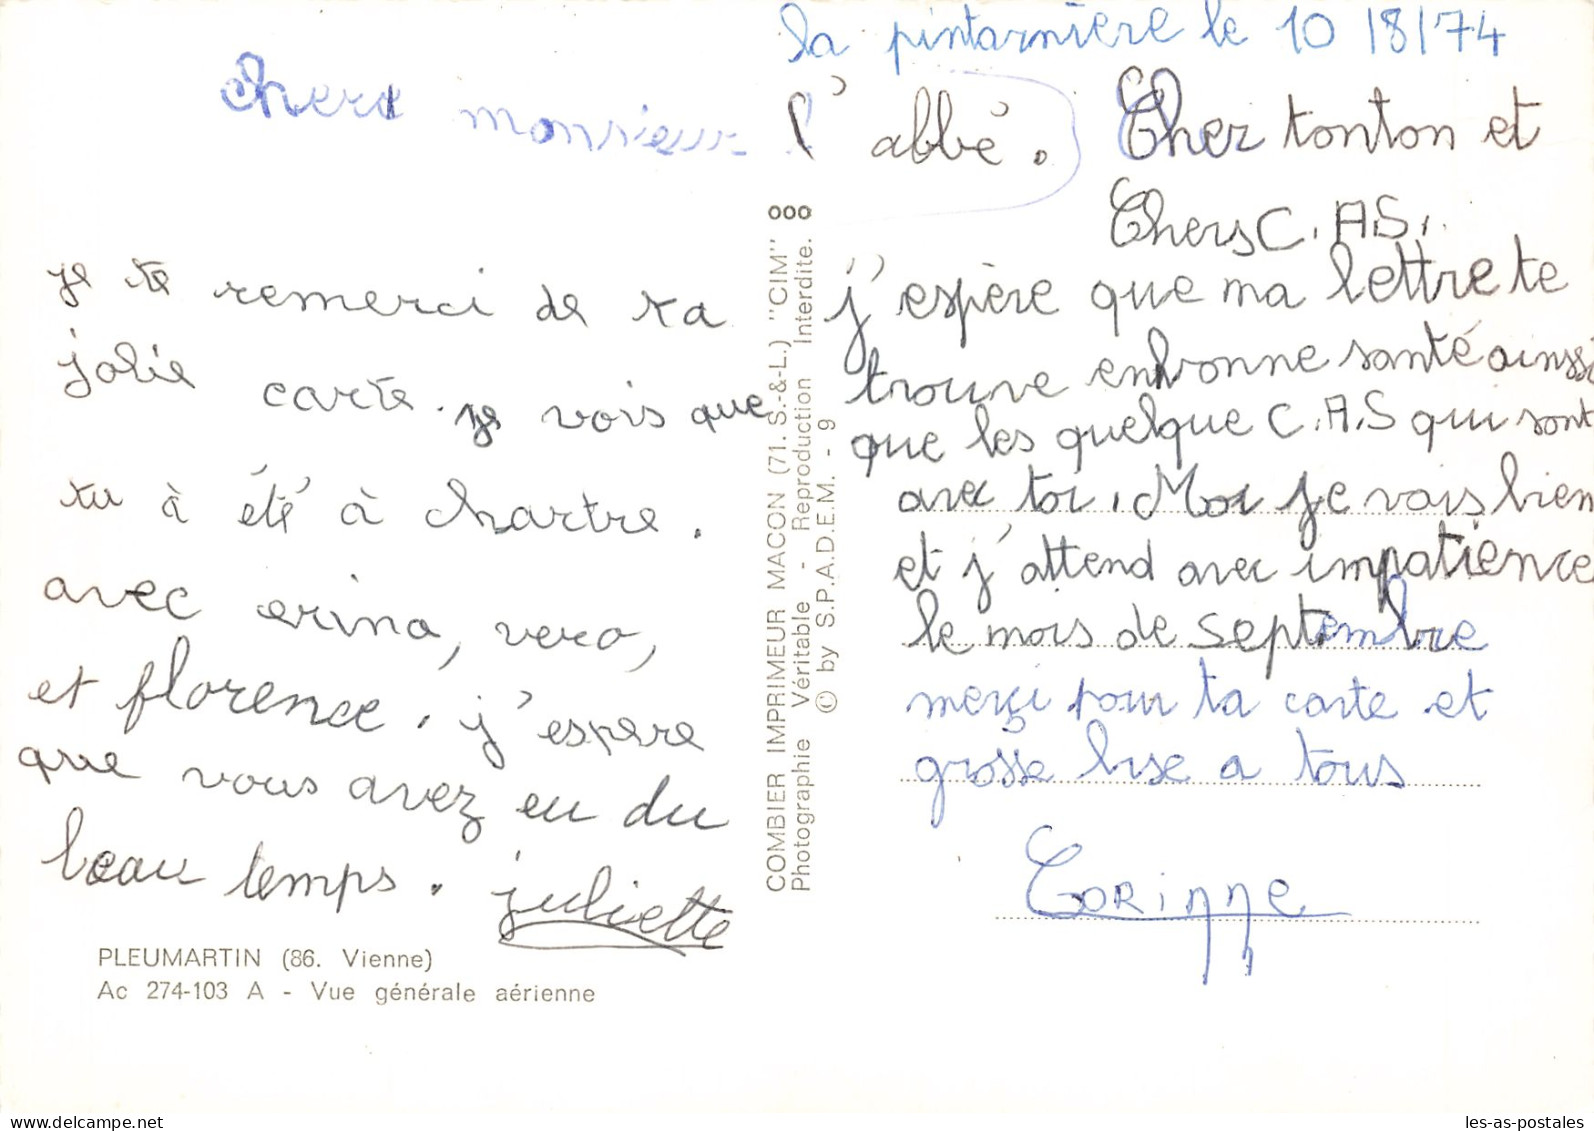 la pintarnière le 10/8/74
chers monsieur l'abbé.
je te remerci de ta
jolie carte. je vois que
tu à été à chartre.
avec erina, vero,
et florence. j'espere
que vous avez eu du
beau temps. juliette
PLEUMARTIN (86. Vienne)
Ac 274-103 A - Vue générale aérienne
COMBIER IMPRIMEUR MACON (71. S.-&-L.) "CIM"
Photographie Véritable - Reproduction Interdite.
© by S.P.A.D.E.M. - 9
Cher tonton et
Chers C.A.S.
j'espère que ma lettre te
trouve en bonne santé ainssi
que les quelque C.A.S qui sont
avec toi. Moi je vais bien
et j'attend avec impatience
le mois de septembre
merçi pour ta carte et
grosse bise a tous
Corinne
les-as-postales